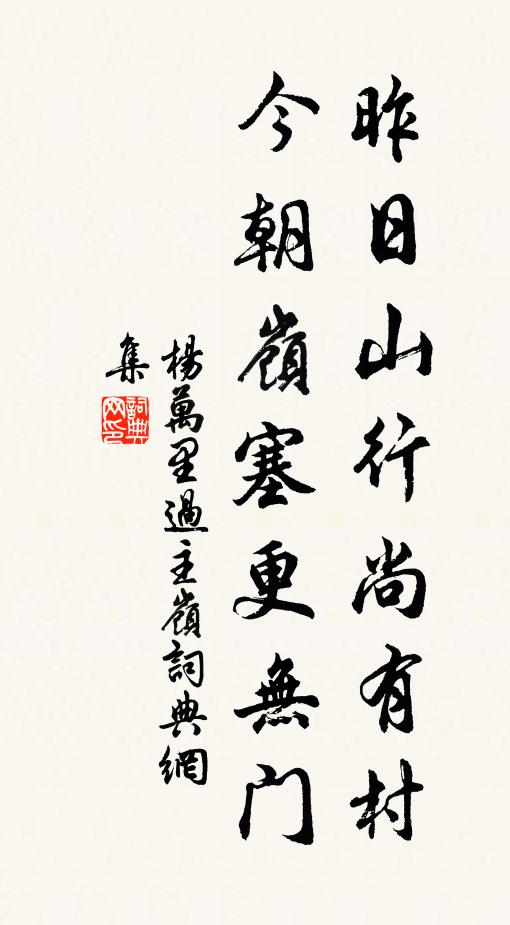 昨日山行尚有村
今朝嶺塞更無門
楊萬里過主嶺詞典網
集
詞典
网印